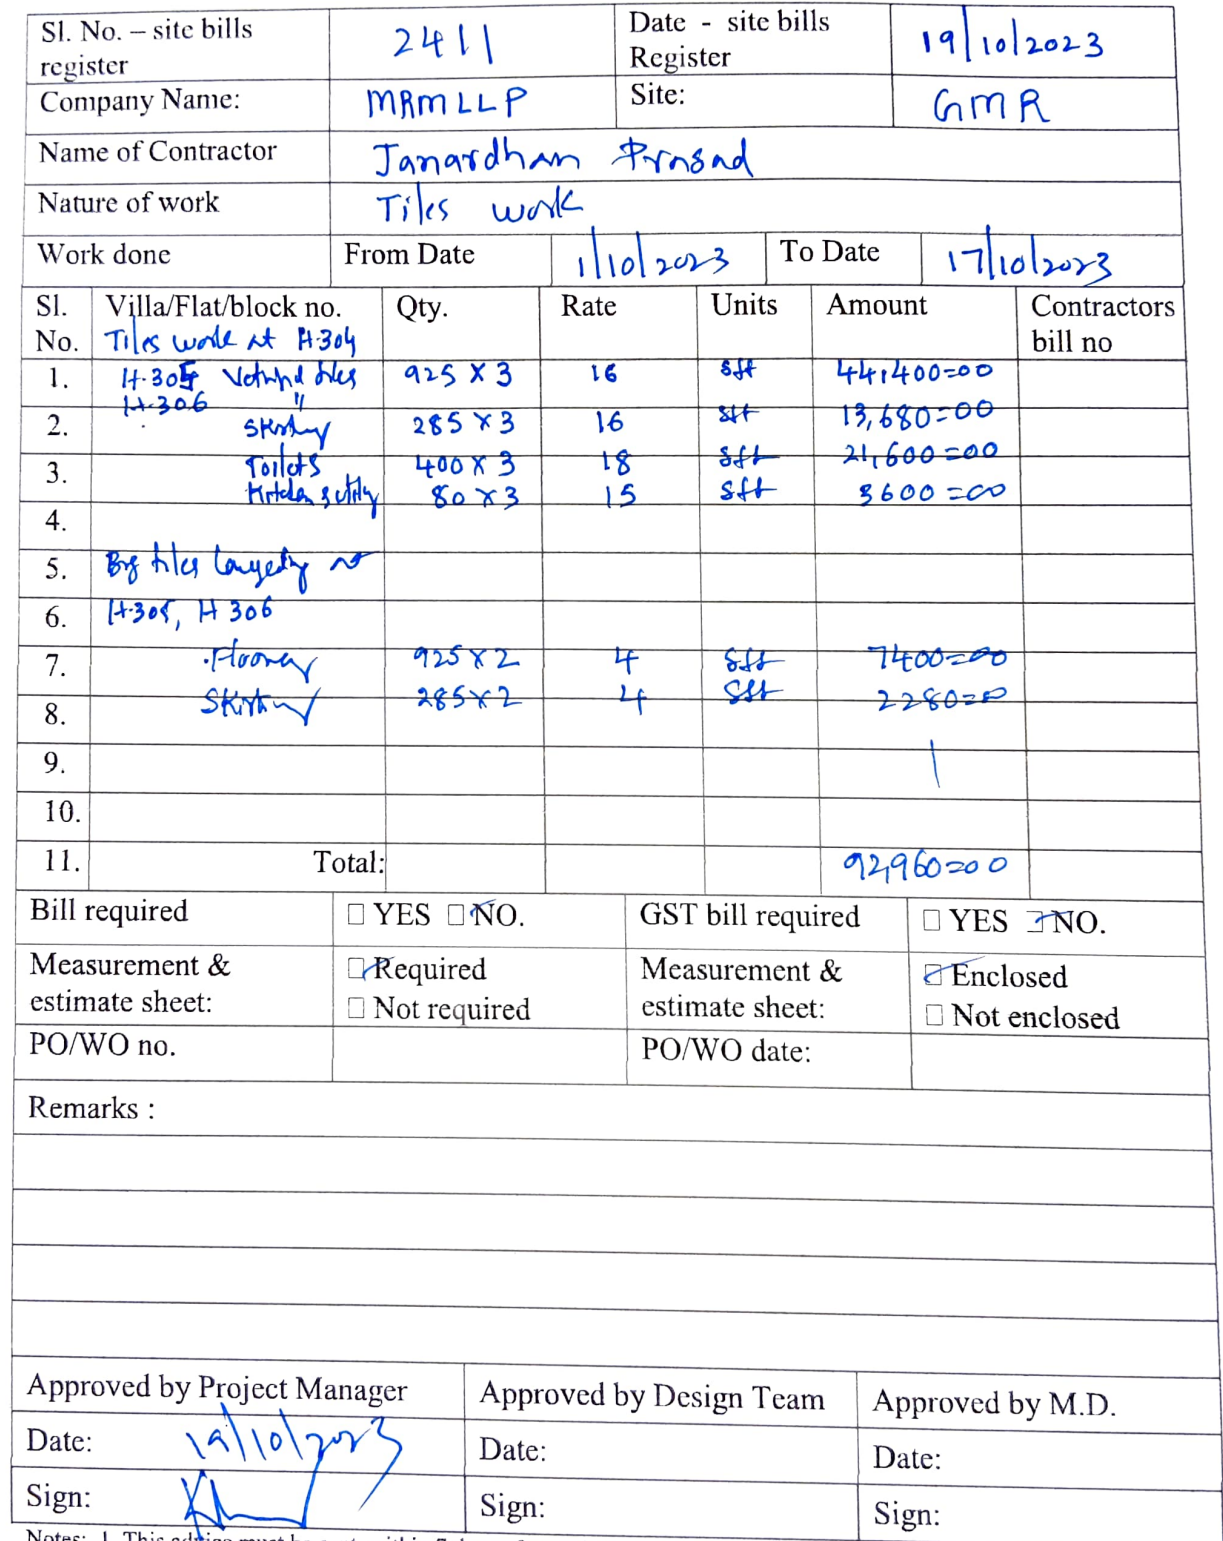 Sl. No. – site bills register 2411 Date - site bills Register 19/10/2023
Company Name: MRMLLP Site: GMR
Name of Contractor Janardhan Prasad
Nature of work Tiles work
Work done From Date 1/10/2023 To Date 17/10/2023
Sl. No. Villa/Flat/block no. Qty. Rate Units Amount Contractors bill no
Tiles work at H-304
1. H-305 tiles 925 X 3 16 sft 44,400=00
H-306 "
2. 285 X 3 16 sft 13,680=00
3. Toilets 400 X 3 18 sft 21,600=00
Kitchen & utility 80 X 3 15 sft 3600=00
4.
5. Big tiles at
6. H-305, H 306
7. Flooring 925 X 2 4 sft 7400=00
8. Skirting 285 X 2 4 sft 2280=0
9.
10.
11. Total: 92,960=00
Bill required YES NO. GST bill required YES NO.
Measurement & estimate sheet: Required Measurement & estimate sheet: Enclosed
Not required Not enclosed
PO/WO no. PO/WO date:
Remarks :
Approved by Project Manager Approved by Design Team Approved by M.D.
Date: 19/10/2023 Date: Date:
Sign: Sign: Sign:
Notes: 1. This